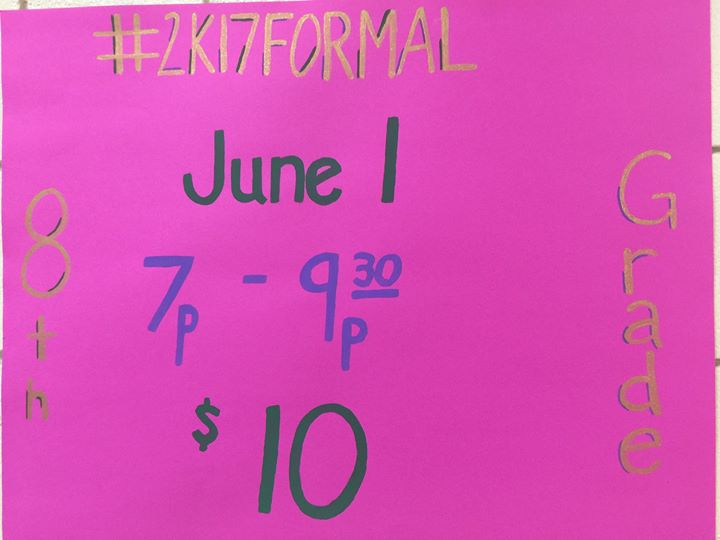 #2K17FORMAL
June 1
7p - 9 30 p
$10
8th
Grade